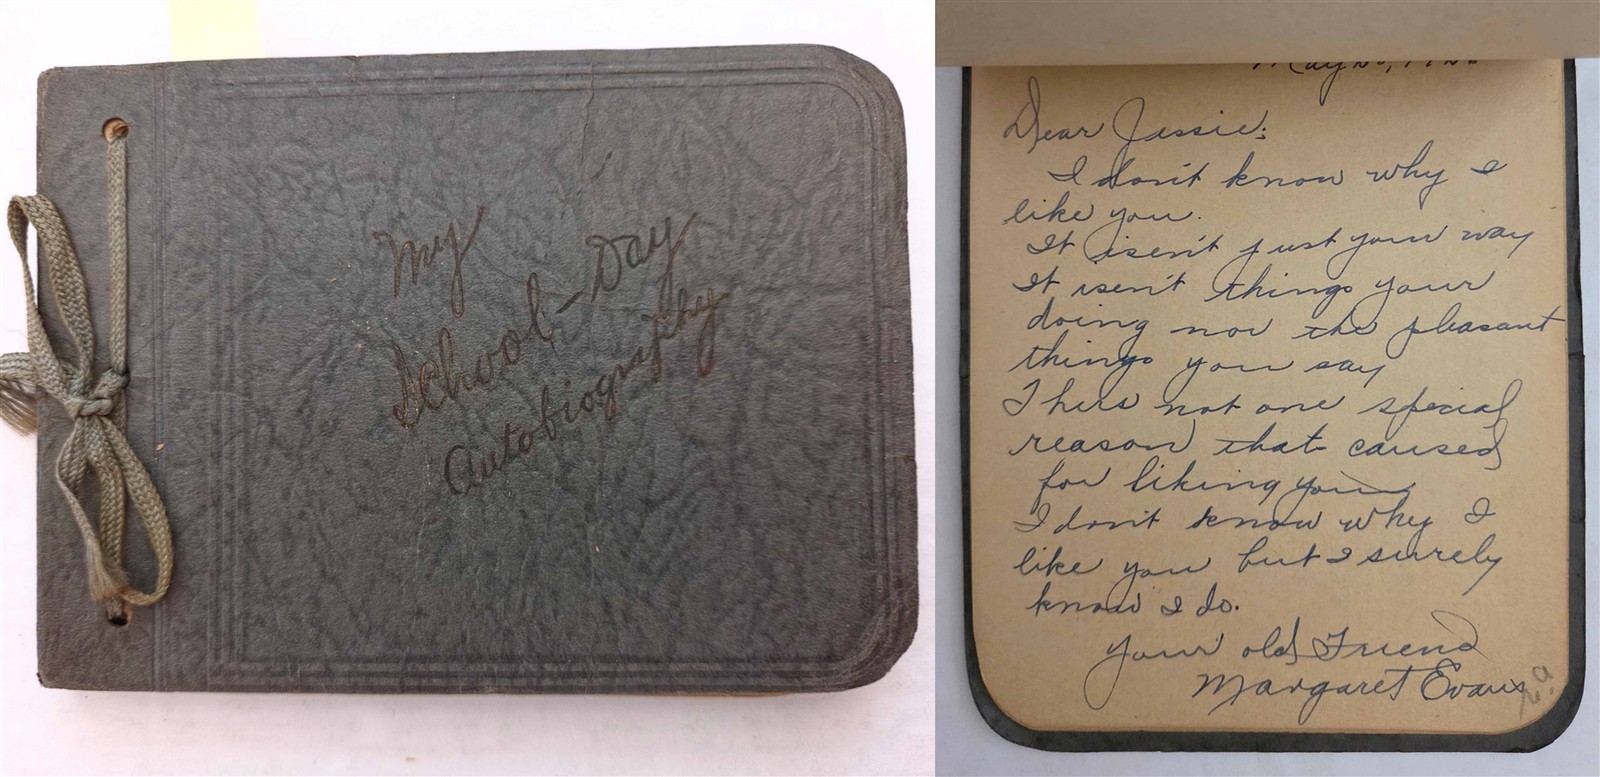 My
School-Day
Autobiography
Dear Jessie:
I don't know why I
like you.
It isen't just your way
It isen't things your
doing nor the pleasant
things you say
Thers not one special
reason that caused
for liking you
I don't know why I
like you but I surely
know I do.
Your old Friend
Margaret Evans